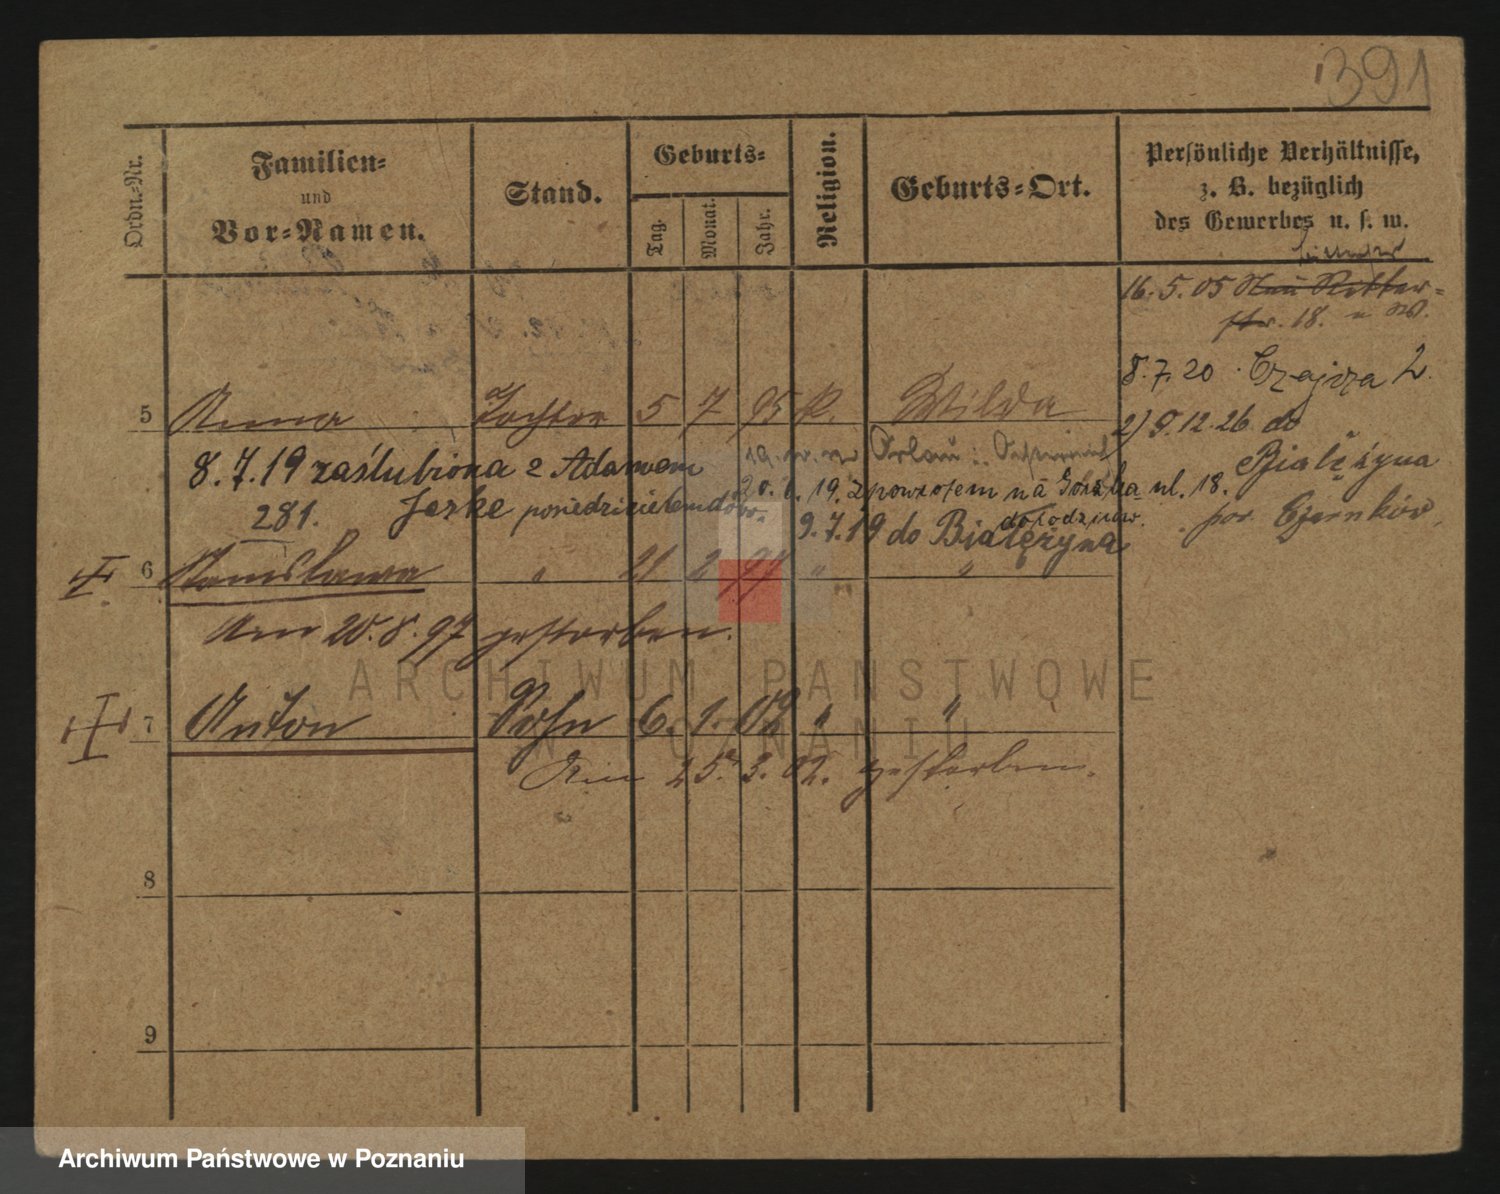 391
Ordn.-Nr.
Familien-
und
Vor-Namen.
Stand.
Geburts-
Tag.
Monat.
Jahr.
Religion.
Geburts-Ort.
Persönliche Verhältnisse,
z. B. bezüglich
des Gewerbes u. s. w.
16. 5. 05 Neu Ritter-
str. 18.
8. 7. 20 Czajcza 2.
5 Anna Tochter 5 7 95 k. Wilda
2) 9. 12. 26 do
Białężyna
pow. Czarnków
8. 7. 19 zaślubiona z Adamem
Jeske
19. z powrotem na ul. 18.
281.
9. 7. 19 do Białężyna
6 Stanisława " 21 2 97 " "
Am 20. 8. 97 gestorben.
7 Anton Sohn 6. 1. 02 " "
Am 25. 3. 02. gestorben.
8
9
ARCHIWUM PAŃSTWOWE
W POZNANIU
Archiwum Państwowe w Poznaniu